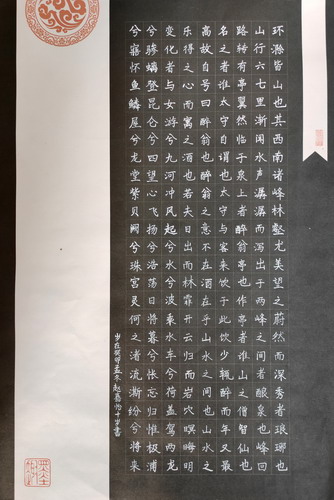 环滁皆山也其西南诸峰林壑尤美望之蔚然而深秀者琅琊也
山行六七里渐闻水声潺潺而泻出于两峰之间者酿泉也峰回
路转有亭翼然临于泉上者醉翁亭也作亭者谁山之僧智仙也
名之者谁太守自谓也太守与客来饮于此饮少辄醉而年又最
高故自号曰醉翁也醉翁之意不在酒在乎山水之间也山水之
乐得之心而寓之酒也若夫日出而林霏开云归而岩穴暝晦明
变化者与女游兮九河冲风起兮水兮波乘水车兮荷盖驾两龙
兮骖螭登昆仑兮四望心飞扬兮浩荡日将暮兮怅忘归惟极浦
兮寤怀鱼鳞屋兮龙堂紫贝阙兮珠宫灵何之渚流澌纷兮将来
岁在癸卯孟冬赵嘉十岁书